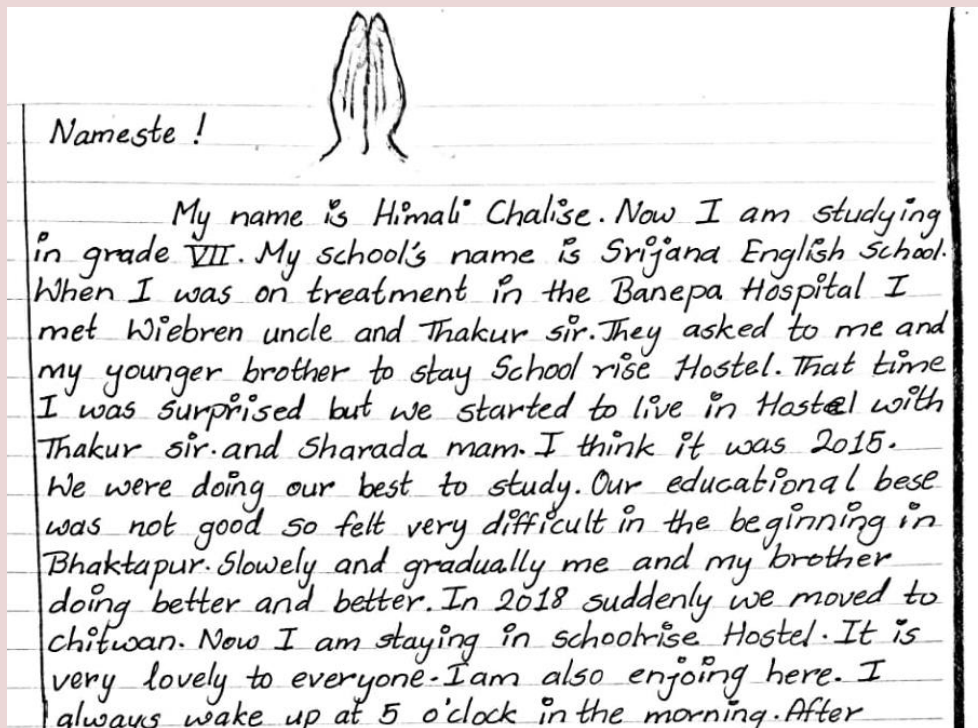 Nameste !
My name is Himali Chalise. Now I am studying
in grade VII. My school's name is Srijana English School.
When I was on treatment in the Banepa Hospital I
met Wiebren uncle and Thakur sir. They asked to me and
my younger brother to stay School rise Hostel. That time
I was surprised but we started to live in Hostel with
Thakur sir. and Sharada mam. I think it was 2015.
We were doing our best to study. Our educational bese
was not good so felt very difficult in the beginning in
Bhaktapur. Slowely and gradually me and my brother
doing better and better. In 2018 suddenly we moved to
chitwan. Now I am staying in schoolrise Hostel. It is
very lovely to everyone. I am also enjoing here. I
always wake up at 5 o'clock in the morning. After